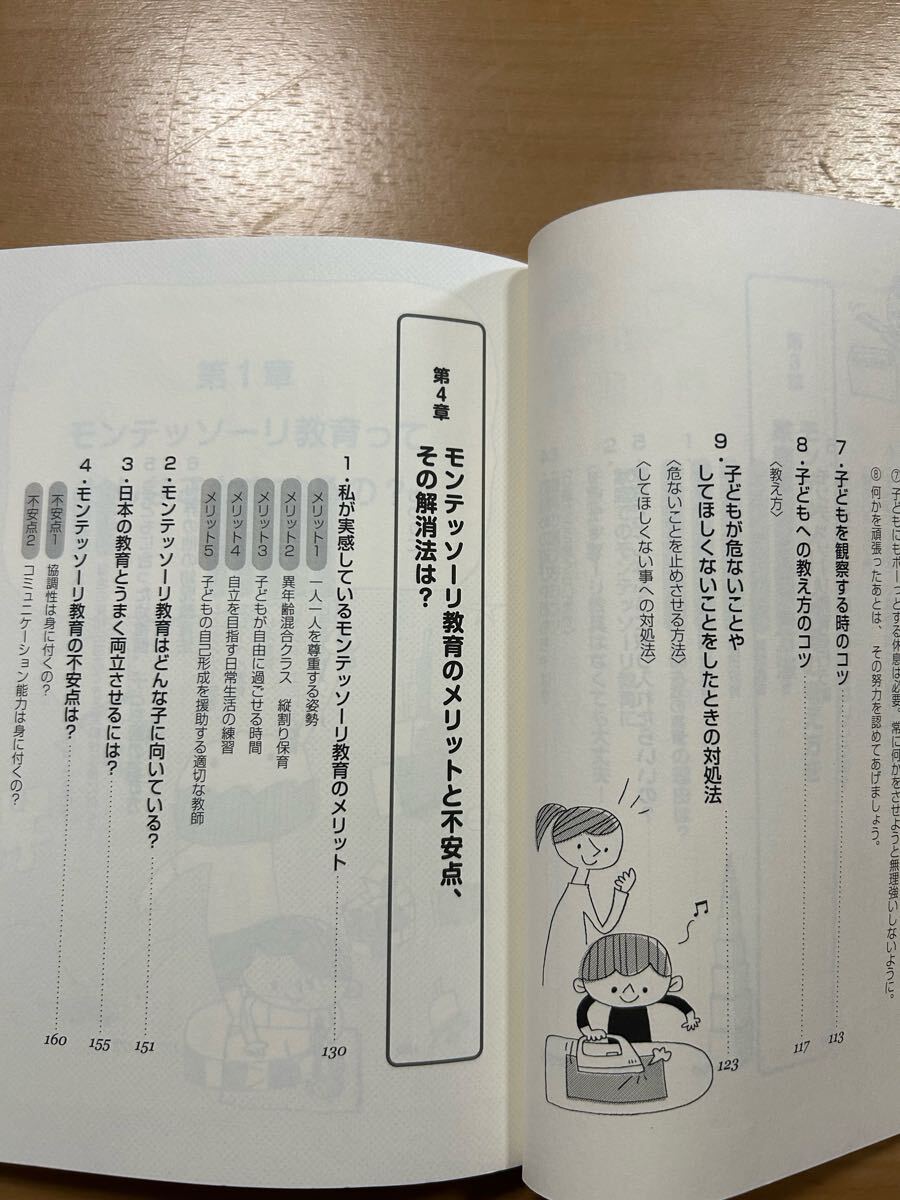 ⑦ 子どもにもボーっとする休息は必要。常に何かをさせようと無理強いしないように。
⑧ 何かを頑張ったあとは、その努力を認めてあげましょう。
7・子どもを観察する時のコツ 113
8・子どもへの教え方のコツ 117
〈教え方〉
9・子どもが危ないことや
してほしくないことをしたときの対処法 123
〈危ないことを止めさせる方法〉
〈してほしくない事への対処法〉
第4章
モンテッソーリ教育のメリットと不安点、
その解消法は?
1・私が実感しているモンテッソーリ教育のメリット 130
メリット1 一人一人を尊重する姿勢
メリット2 異年齢混合クラス 縦割り保育
メリット3 子どもが自由に過ごせる時間
メリット4 自立を目指す日常生活の練習
メリット5 子どもの自己形成を援助する適切な教師
2・モンテッソーリ教育はどんな子に向いている? 151
3・日本の教育とうまく両立させるには? 155
4・モンテッソーリ教育の不安点は? 160
不安点1 協調性は身に付くの?
不安点2 コミュニケーション能力は身に付くの?
第1章
モンテッソーリ教育って